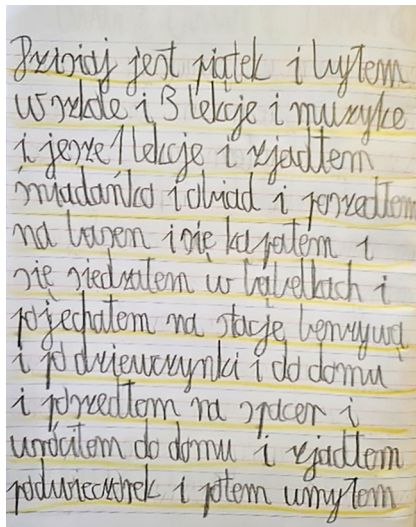 Dzisiaj jest piątek i byłem
w szkole i 3 lekcje i muzykę
i jeszcze 1 lekcje i zjadłem
śniadańko i obiad i poszedłem
na basen i się kąpałem i
się siedziałem w bąbelkach i
pojechałem na stację benzywą
i po dziewczynki i do domu
i poszedłem na spacer i
wróciłem do domu i zjadłem
podwieczorek i potem umyłem